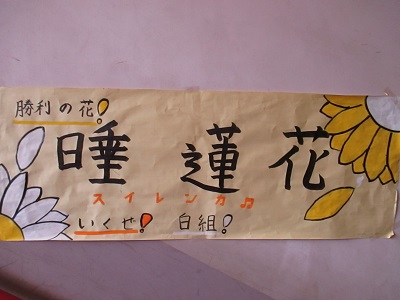 勝利の花!
睡蓮花
スイレンカ♫
いくぜ! 白組!